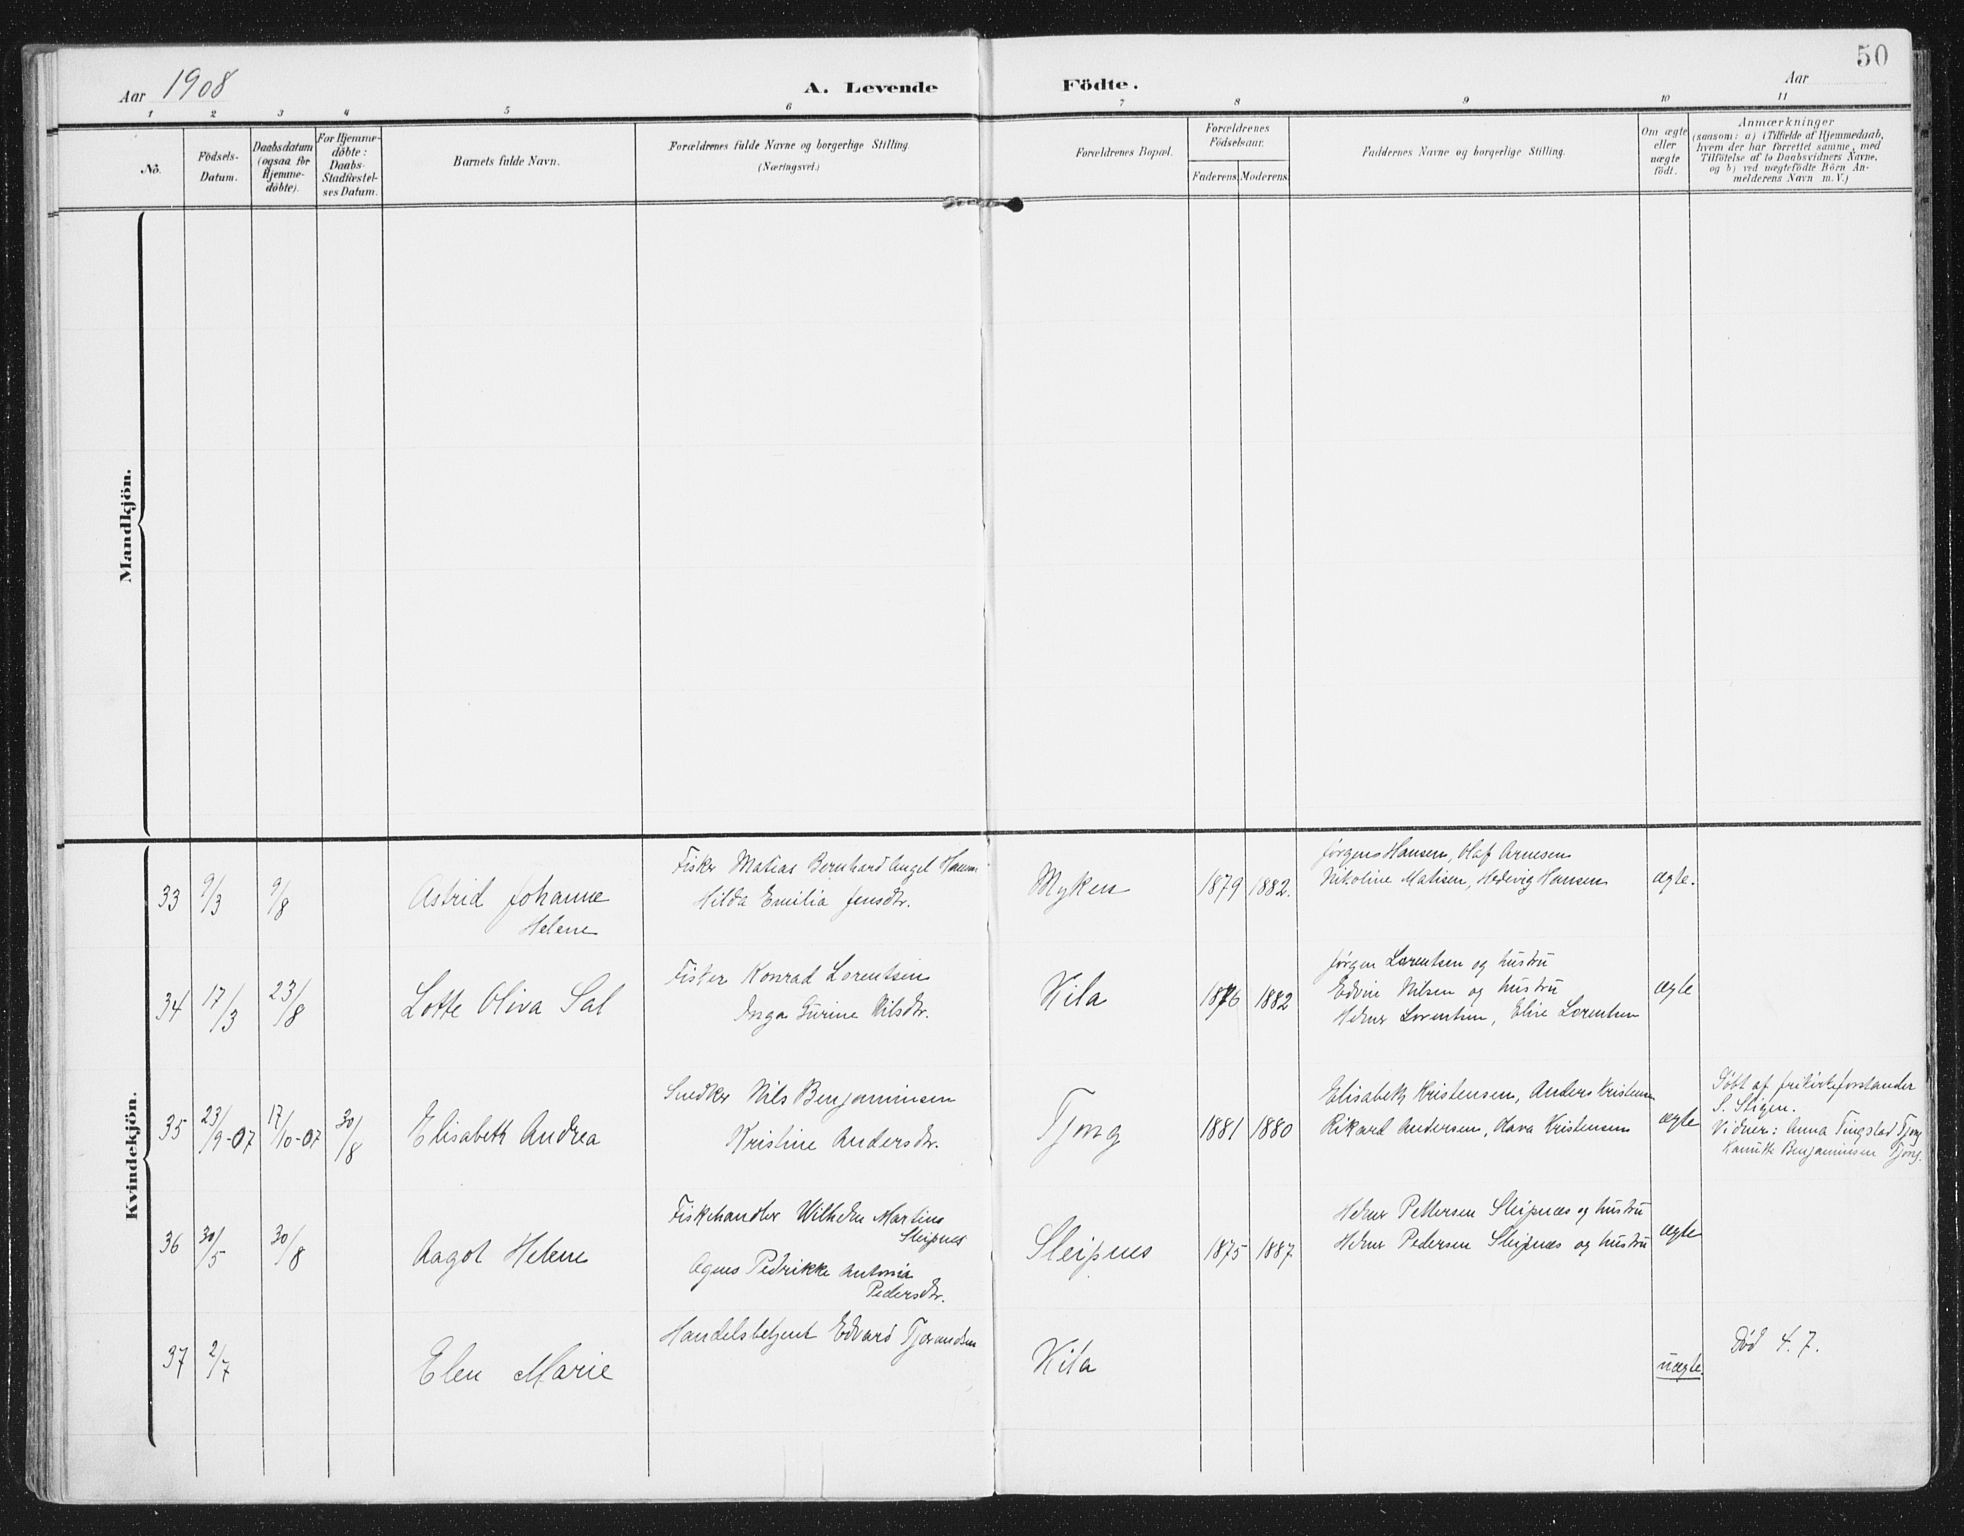 50
Aar 1908
A. Levende Födte.
Aar
1 2 3 4 5 6 7 8 9 10 11
No.
Födsels-
Datum.
Daabsdatum
(ogsaa for
Hjemme-
döbte).
For Hjemme-
döbte:
Daabs-
Stadfæstel-
ses Datum.
Barnets fulde Navn.
Forældrenes fulde Navne og borgerlige Stilling.
(Næringsvei.)
Forældrenes Bopæl.
Forældrenes
Födselsaar.
Faderens. Moderens.
Faddernes Navne og borgerlige Stilling.
Om ægte
eller
uægte
födt.
Anmærkninger
(saasom: a) i Tilfælde af Hjemmedaab,
hvem der har forrettet samme, med
Tilföielse af to Daabsvidners Navne,
og b) ved uægtefödte Börn An-
melderens Navn m. V.)
Mandkjön.
Kvindekjön.
33 9/3 9/8
Astrid Johanne
Helene
Fisker Matias Bernhard Angel
Hilda Emilia Jensdtr.
Myken
1879 1882.
Jørgen Hansen, Olaf Arnesen
Nikoline Matisen, Hedevig Hansen
ægte.
34 17/3 23/8
Lotte Oliva Sal
Fisker Konrad Lorentsen
Inga Gurine Nilsdtr.
Kila
1876 1882
Jørgen Lorentsen og hustru
Edvin Nilsen og hustru
Helmer Lorentsen, Eline Lorentsen
ægte
35 23/9-07 17/10-07 30/8
Elisabeth Andrea
Snedker Nils Benjaminsen
Kristine Andersdtr.
Tjong
1881 1880
Elisabeth Kristensen, Anders Kristensen
Rikard Andersen, Hava Kristensen
ægte
Døbt af frikirkeforstander
S. Stigen.
Vidner: Anna Tingstad Tjong
Benjaminsen Tjong.
36 30/5 30/8
Aagot Helene
Fiskehandler Wilhelm Martins
Sleipnes
Agnes Pedrikke Antonia
Pedersdtr.
Sleipnes
1875 1887.
Helmer Pettersen Sleipnæs og hustru
Helmer Pedersen Sleipnæs og hustru
ægte
37 2/7
Elen Marie
Handelsbetjent Edvard Tjorandsen
Kila
uægte.
Død 4.7.